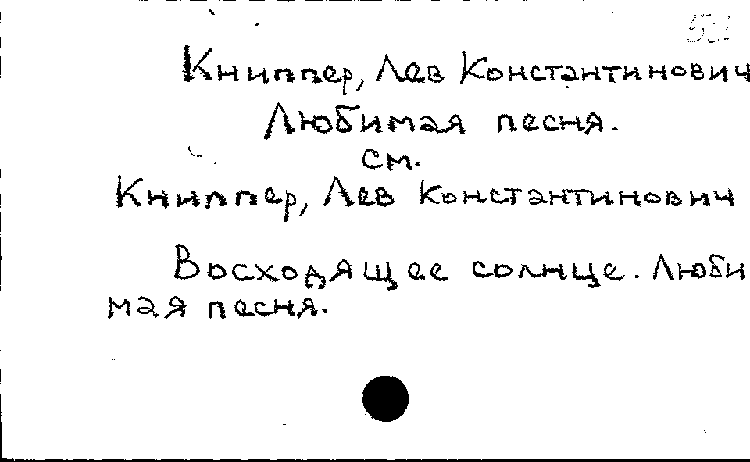 Книппер, Лев Константинович
Любимая песня.
см.
Книппер, Лев Константинович
Восходящее солнце. Люби
мая песня.